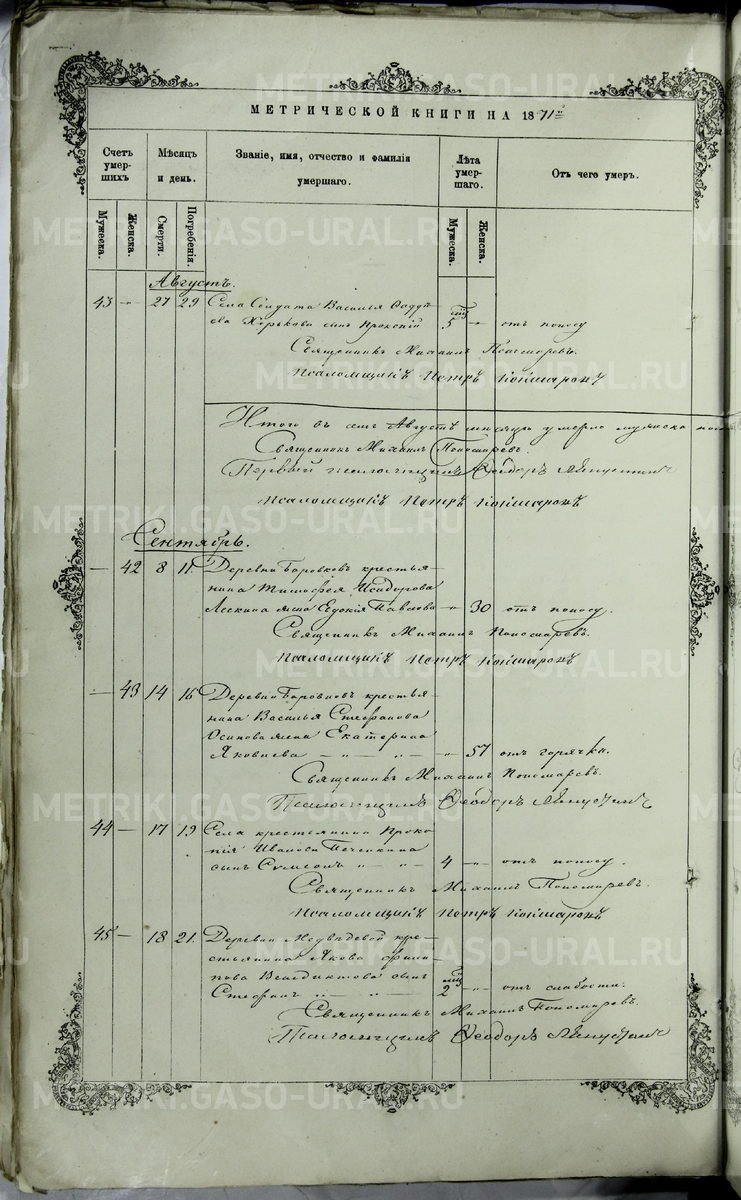 МЕТРИЧЕСКОЙ КНИГИ НА 1871й
Счетъ умершихъ
Мѣсяцъ и день.
Званіе, имя, отчество и фамилія умершаго.
Лѣта умершаго.
Отъ чего умеръ.
Мужеска.
Женска.
Смерти.
Погребенія.
Мужеска.
Женска.
Августъ.
43 " 27 29 Села Солдата Василья Фаддѣ-
ева Хорькова сынъ 5 " отъ поносу
Священникъ Михаилъ Пономаревъ.
Псаломщикъ Петръ Кокшаровъ
Итого въ Августѣ мѣсяцѣ умерло мужеска
Священникъ Михаилъ Пономаревъ.
Первый псаломщикъ Ѳеодоръ
Псаломщикъ Петръ Кокшаровъ
Сентябрь.
— 42 8 11. Деревни Боровковъ крестья-
нина Тимофея Исидорова
жена Евдокія Павлова " 30 отъ поносу.
Священникъ Михаилъ Пономаревъ.
Псаломщикъ Петръ Кокшаровъ
— 43 14 16 Деревни Боровковъ крестья-
нина Василья Стефанова
Осинова жена Екатерина
Яковлева — " — " — " 57 отъ горячки.
Священникъ Михаилъ Пономаревъ.
Псаломщикъ Ѳеодоръ
44 — 17 19 Села крестьянина Проко-
пія Иванова Печенкина
сынъ Симеонъ " " 4 — отъ поносу.
Священникъ Михаилъ Пономаревъ.
Псаломщикъ Петръ Кокшаровъ
45 — 18 21. Деревни Медвѣдевой кре-
стьянина Якова Филип-
пова Венедиктова сынъ
Стефанъ " — " 2 — " — отъ слабости.
Священникъ Михаилъ Пономаревъ.
Псаломщикъ Ѳеодоръ
METRIKI.GASO-URAL.RU